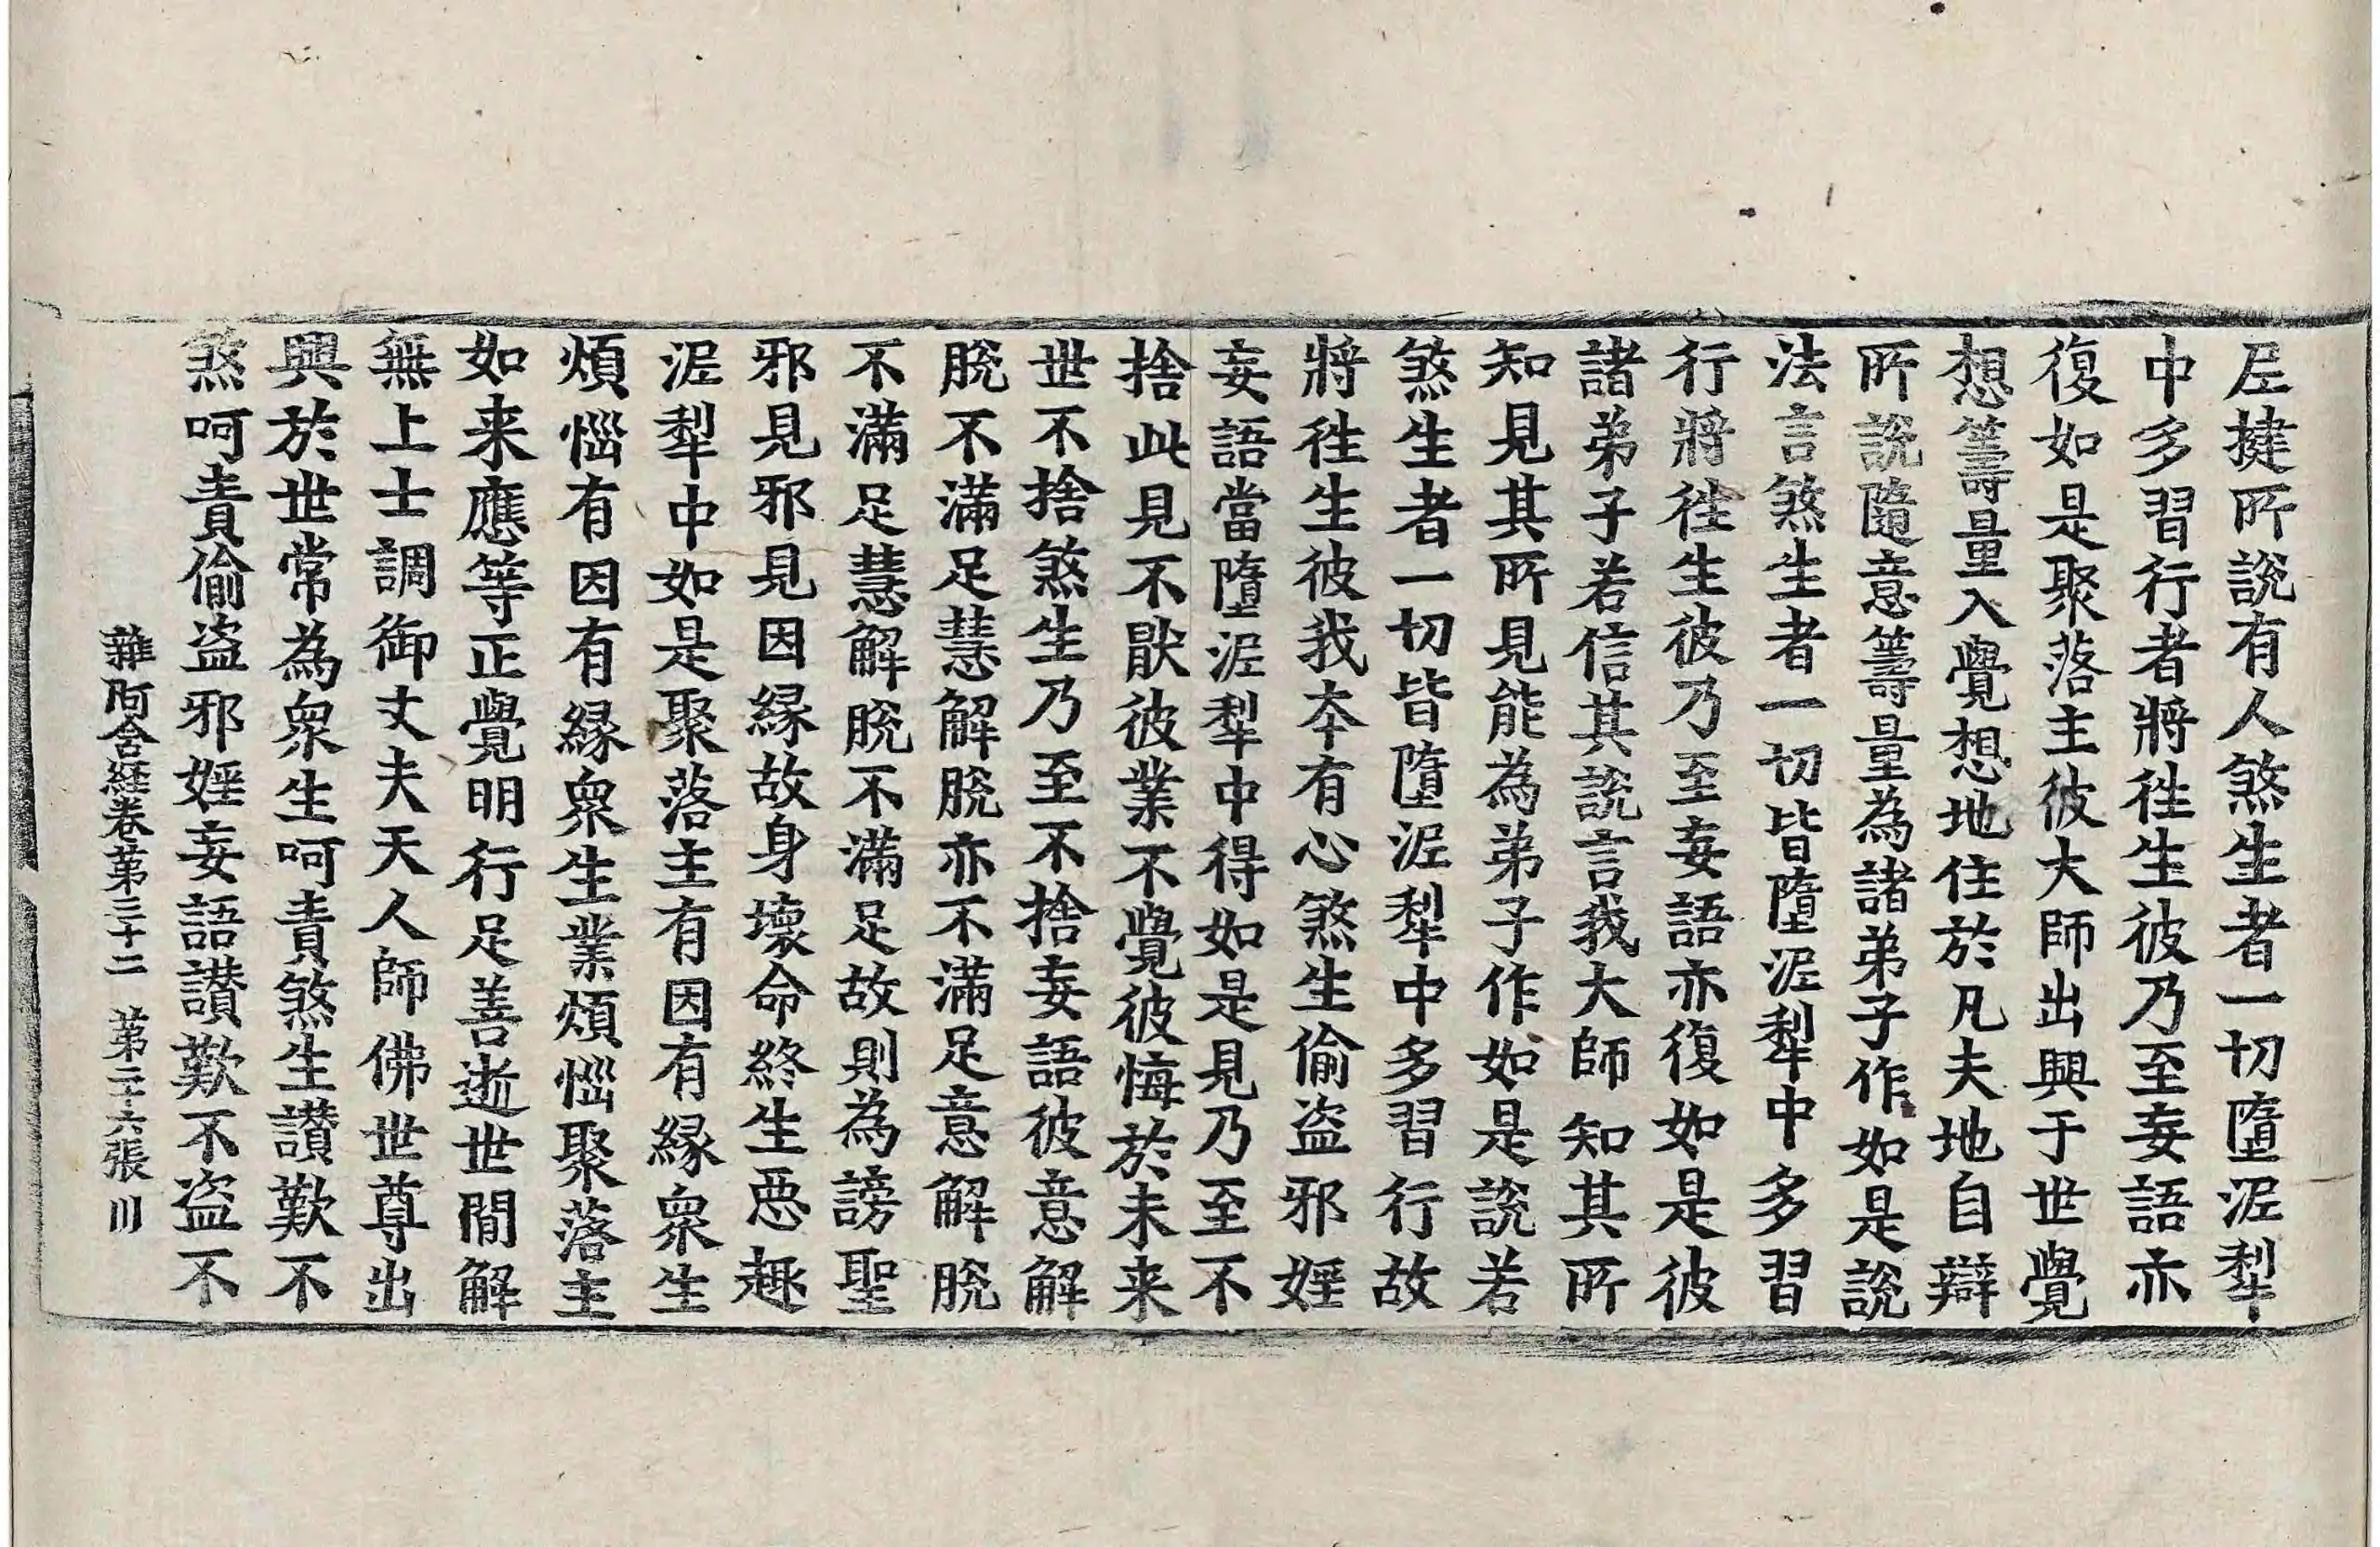 尼揵所說有人煞生者一切墮泥犁
中多習行者將徃生彼乃至妄語亦
復如是聚落主彼大師出興于世覺
想籌量入覺想地住於凡夫地自辯
所說隨意籌量為諸弟子作如是說
法言煞生者一切皆墮泥犁中多習
行將徃生彼乃至妄語亦復如是彼
諸弟子若信其說言我大師知其所
知見其所見能為弟子作如是說若
煞生者一切皆墮泥犁中多習行故
將徃生彼我夲有心煞生偷盗邪婬
妄語當墮泥犁中得如是見乃至不
捨此見不猒彼業不覺彼悔於未来
世不捨煞生乃至不捨妄語彼意解
脫不滿足慧解脫亦不滿足意解脫
不滿足慧解脫不滿足故則為謗聖
邪見邪見因緣故身壞命終生惡趣
泥犁中如是聚落主有因有緣衆生
煩惱有因有緣衆生業煩惱聚落主
如来應等正覺明行足善逝世間解
無上士調御丈夫天人師佛世尊出
興於世常為衆生呵責煞生讃歎不
煞呵責偷盗邪婬妄語讃歎不盗不
雜阿含経卷第三十二　第二十六張　川